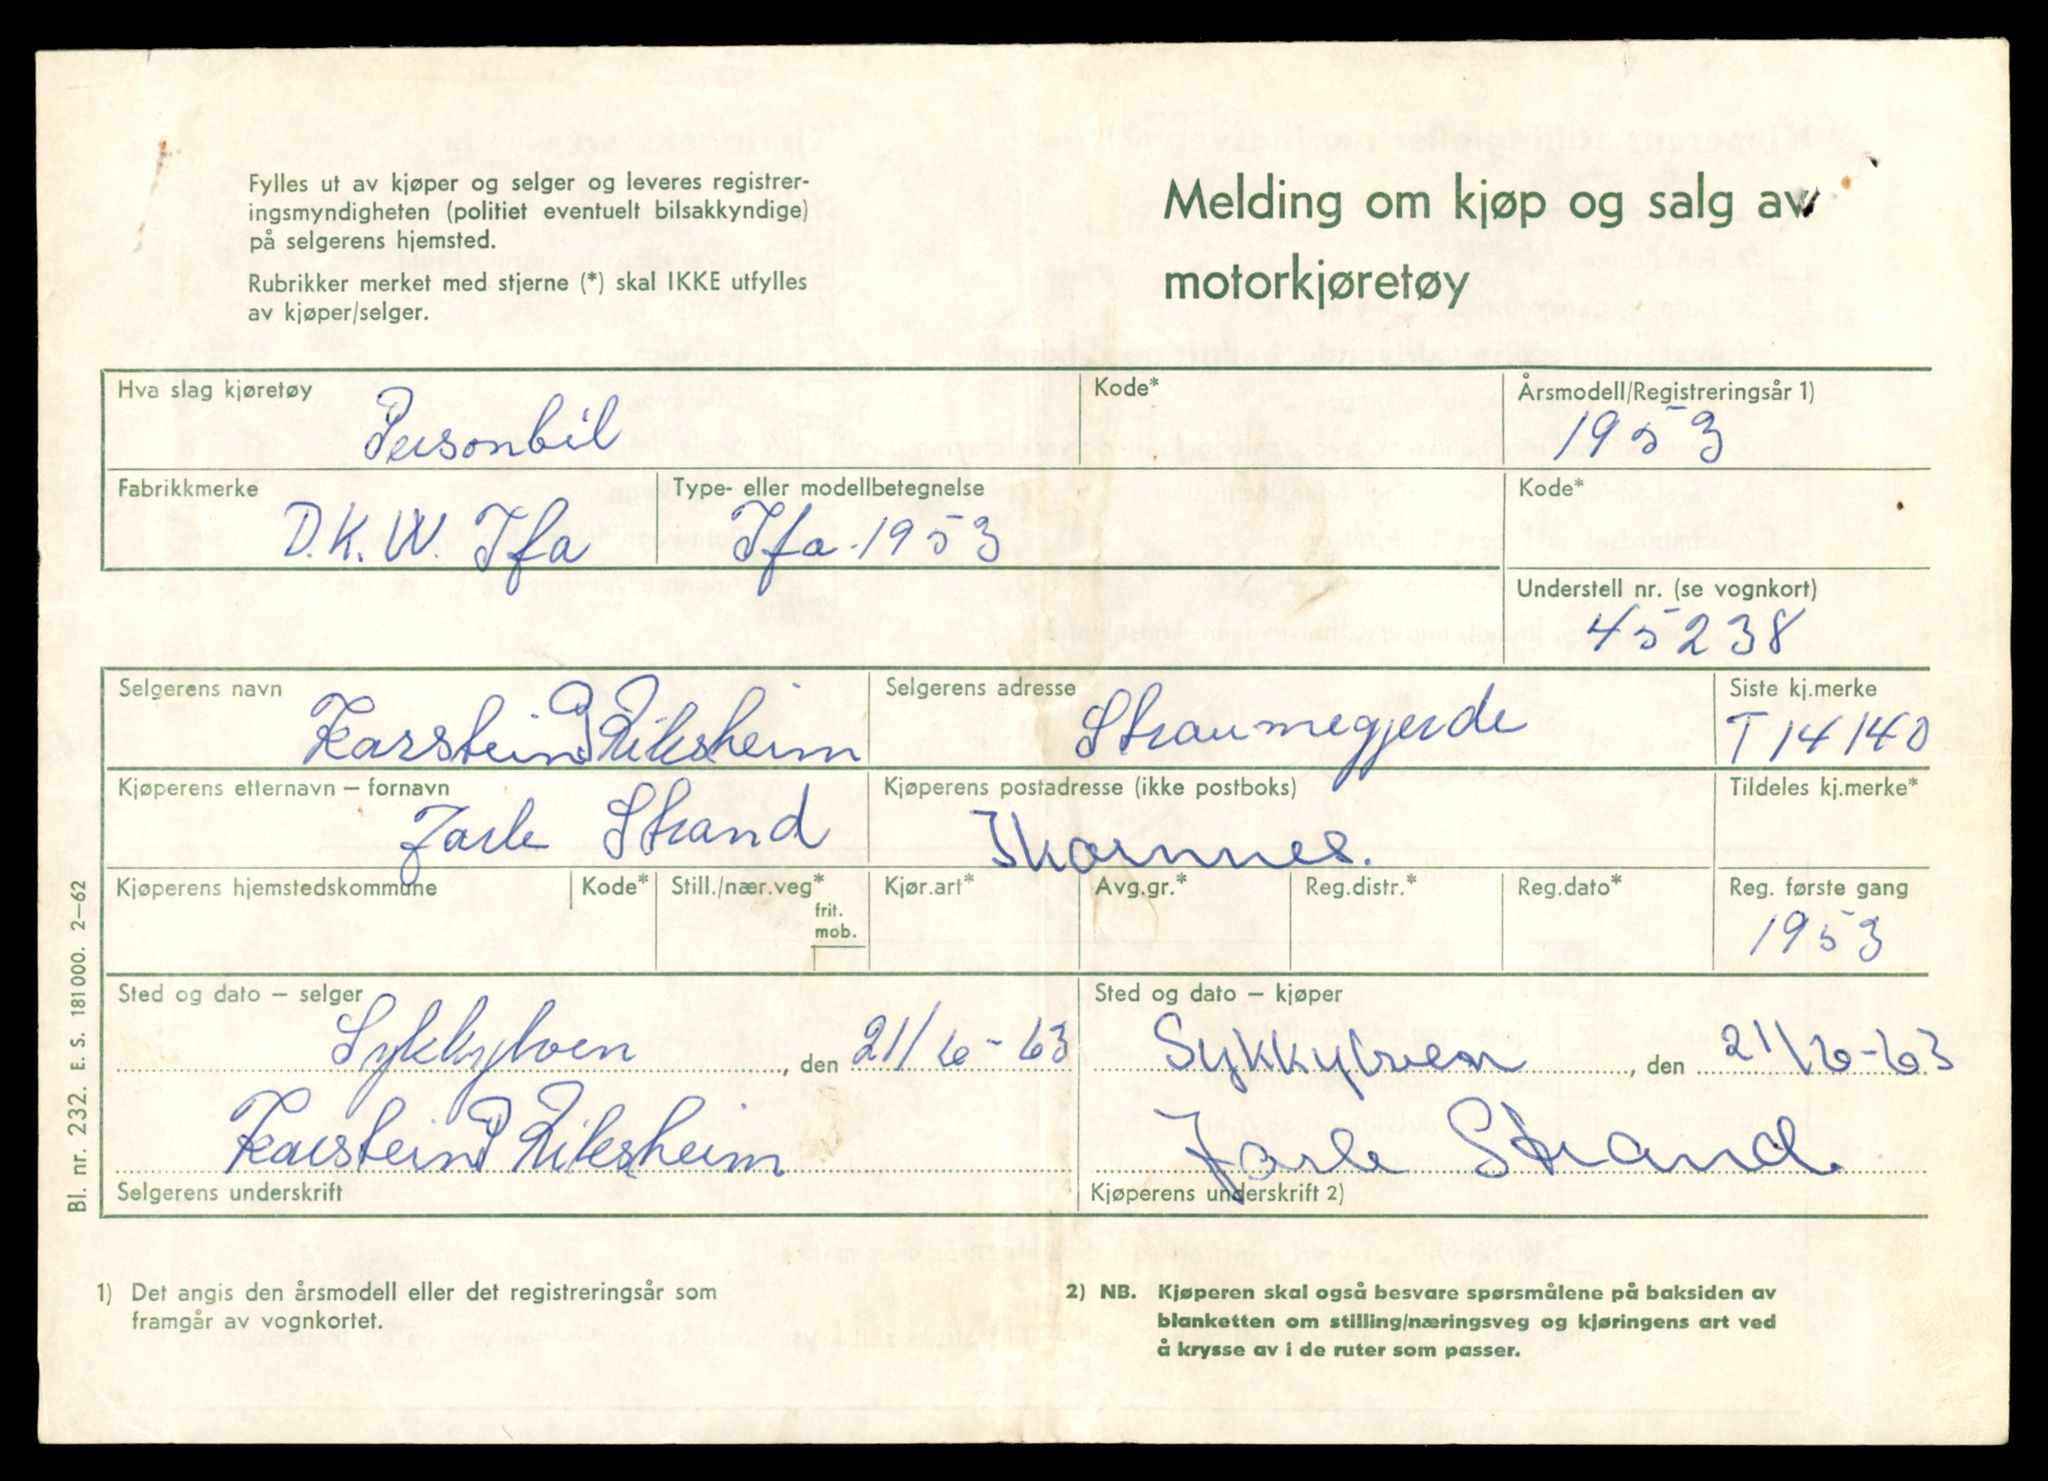 Fylles ut av kjøper og selger og leveres registrer-
ingsmyndigheten (politiet eventuelt bilsakkyndige)
på selgerens hjemsted.
Rubrikker merket med stjerne (*) skal IKKE utfylles
av kjøper/selger.
Melding om kjøp og salg av
motorkjøretøy
Hva slag kjøretøy
Personbil
Kode*
Årsmodell/Registreringsår 1)
1953
Fabrikkmerke
D.K.W. Ifa
Type- eller modellbetegnelse
Ifa-1953
Kode*
Understell nr. (se vognkort)
45238
Selgerens navn
Karstein P Riksheim
Selgerens adresse
Straumegjerde
Siste kj.merke
T 14140
Kjøperens etternavn – fornavn
Jarle Strand
Kjøperens postadresse (ikke postboks)
Ikornnes.
Tildeles kj.merke*
Kjøperens hjemstedskommune
Kode*
Still./nær.veg*
frit.
mob.
Kjør.art*
Avg.gr.*
Reg.distr.*
Reg.dato*
Reg. første gang
1953
Sted og dato – selger
Sykkylven, den 21/6-63
Karstein P Riksheim
Selgerens underskrift
Sted og dato – kjøper
Sykkylven, den 21/6-63
Jarle Strand.
Kjøperens underskrift 2)
Bl. nr. 232. E. S. 181000. 2–62
1) Det angis den årsmodell eller det registreringsår som
framgår av vognkortet.
2) NB. Kjøperen skal også besvare spørsmålene på baksiden av
blanketten om stilling/næringsveg og kjøringens art ved
å krysse av i de ruter som passer.